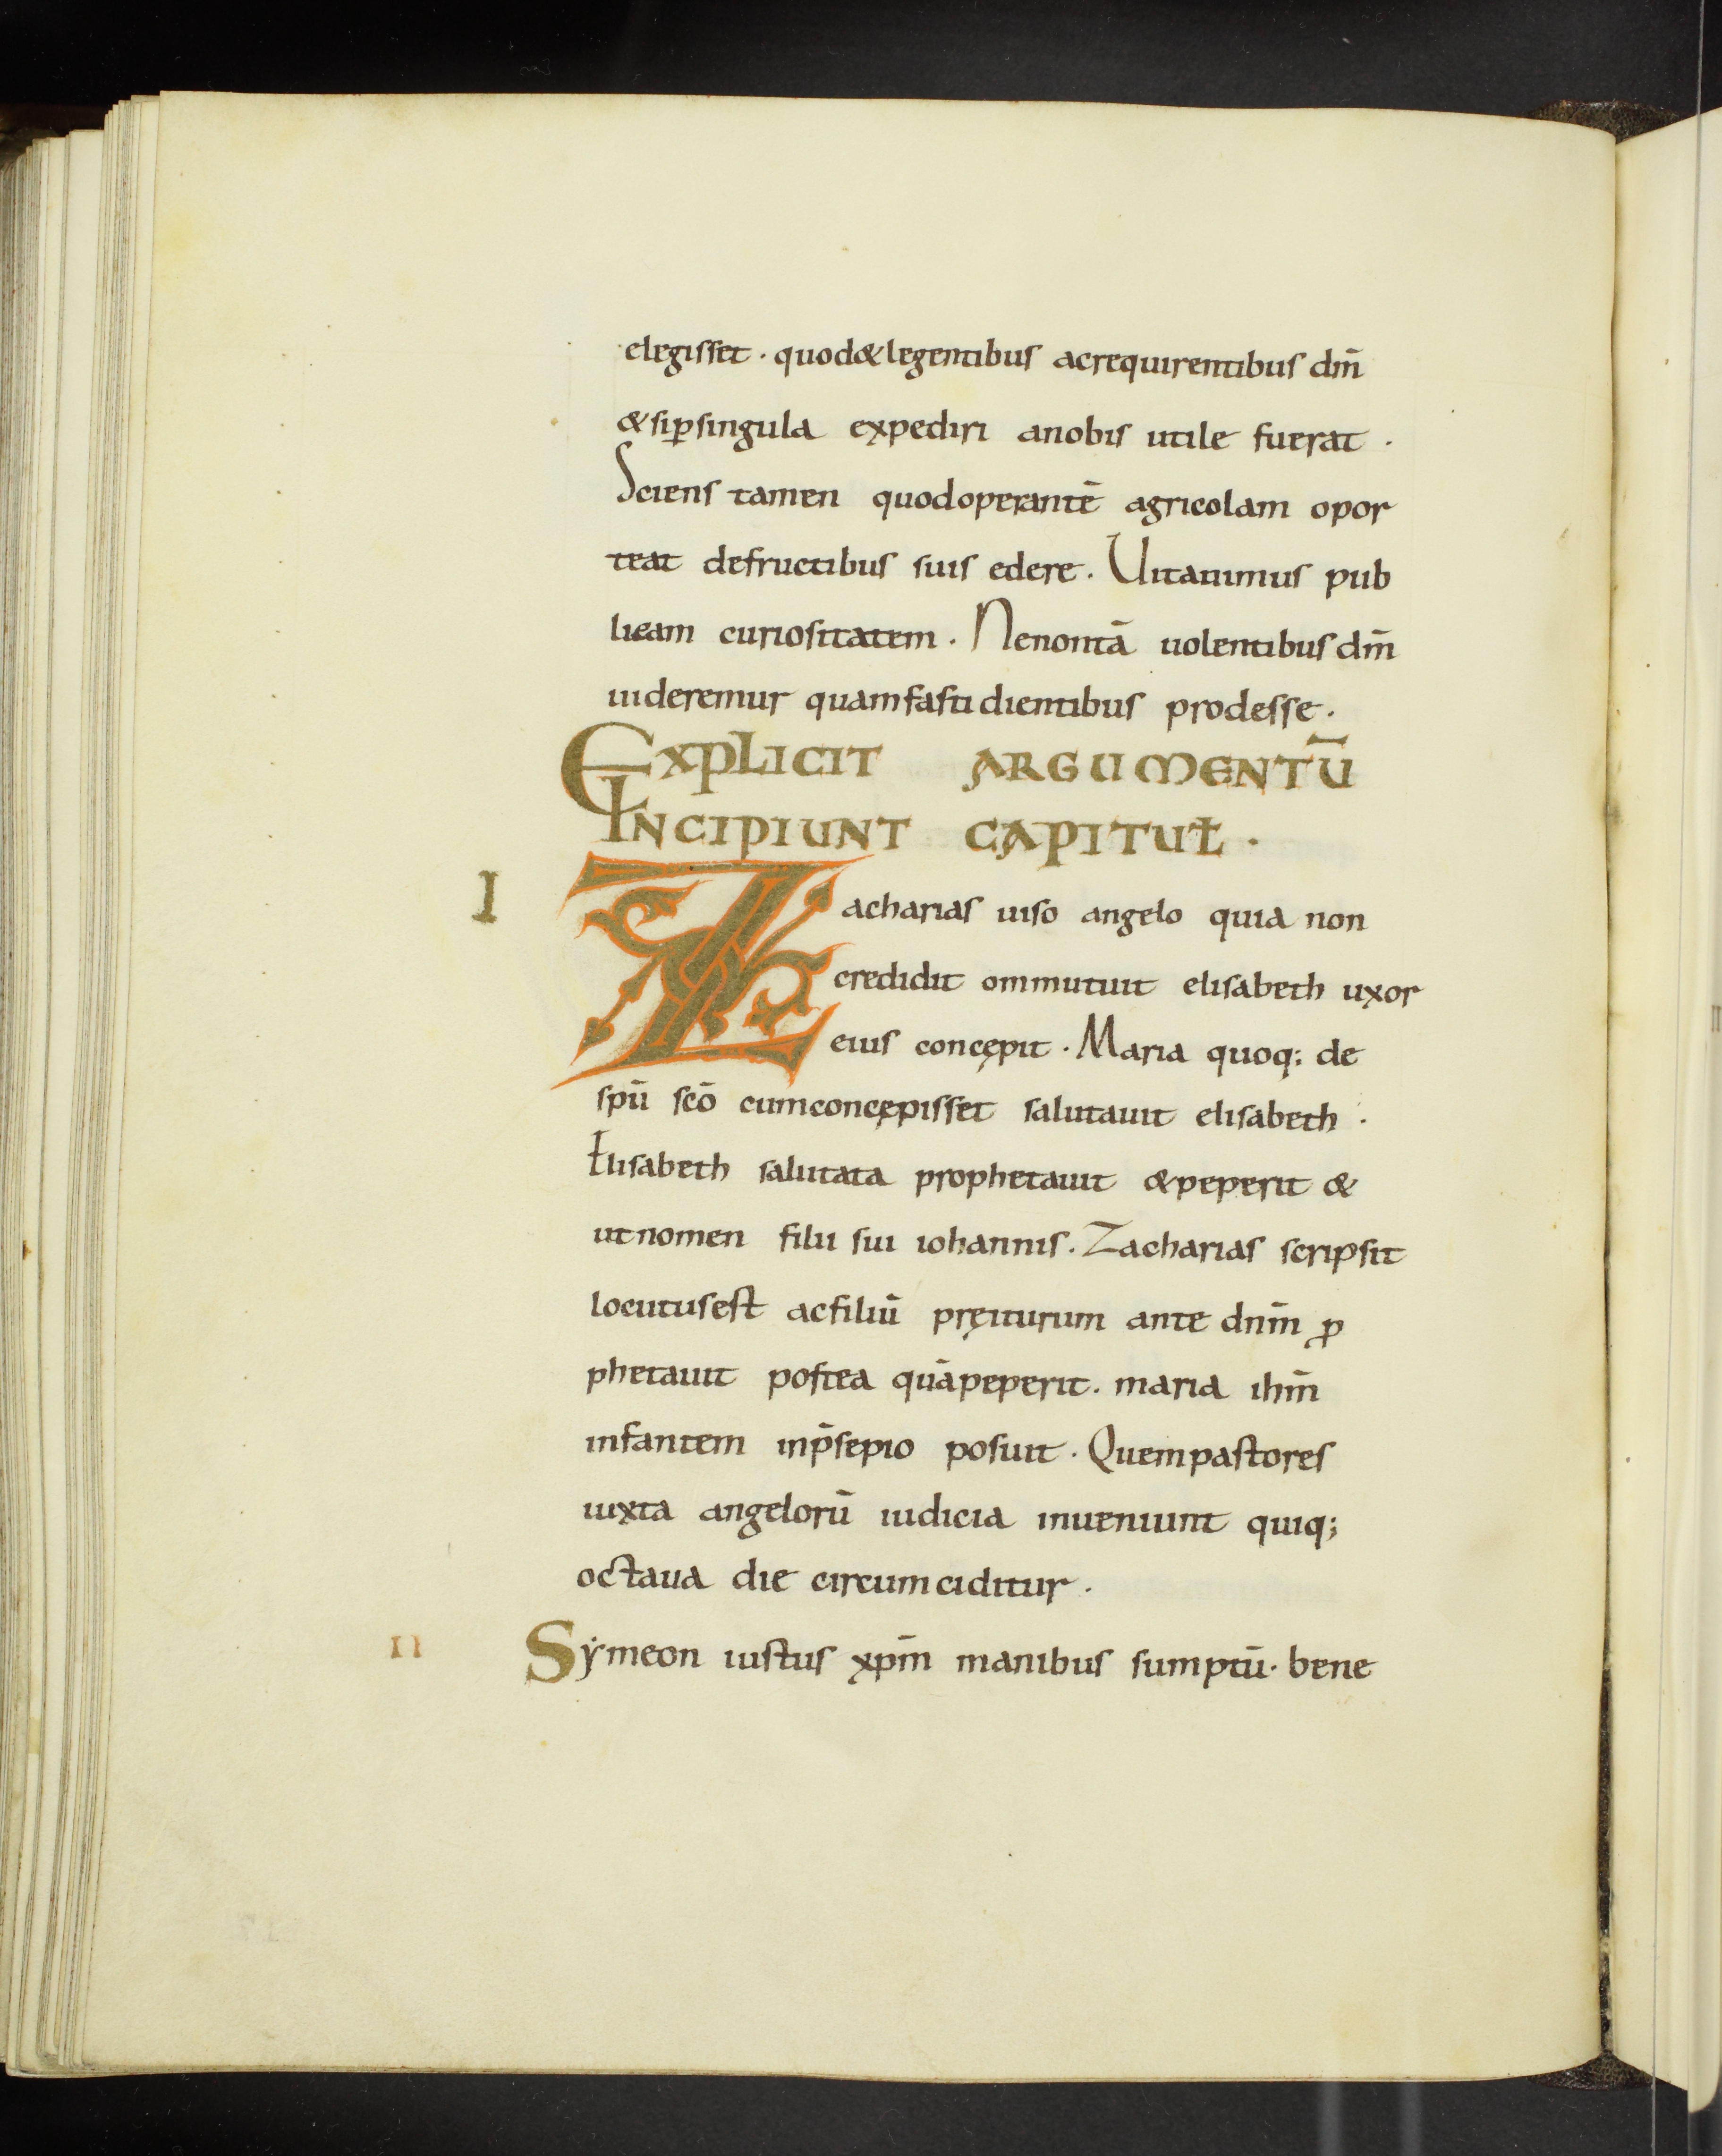 elegisset · quod&legentibus acrequirentibus dm̄
&sip̲singula expediri anobis utile fuerat ·
Sciens tamen quodoperantē agricolam opor
teat defructibus suis edere. Uitauimus pub
licam curiositatem · Nenontā uolentibus dm̄
uideremur quamfastidientibus prodesse ·
EXPLICIT ARGUMENTŪ
INCIPIUNT CAPITUŁ ·
I Zacharias uiso angelo quia non
credidit ommutuit elisabeth uxor
eius concępit · Maria quoq; de
spū scō cumconcępisset salutauit elisabeth ·
Elisabeth salutata prophetauit &peperit &
utnomen filii sui iohannis. Zacharias scripsit
locutusest acfiliū pręiturum ante dnm̄ ꝓ
phetauit postea quāpeperit. maria ihm̄
infantem inp̄sepio posuit · Quempastores
iuxta angelorū iudicia inueniunt quiq;
octaua die circumciditur ·
II Sẏmeon iustus xpm̄ manibus sumptū· bene